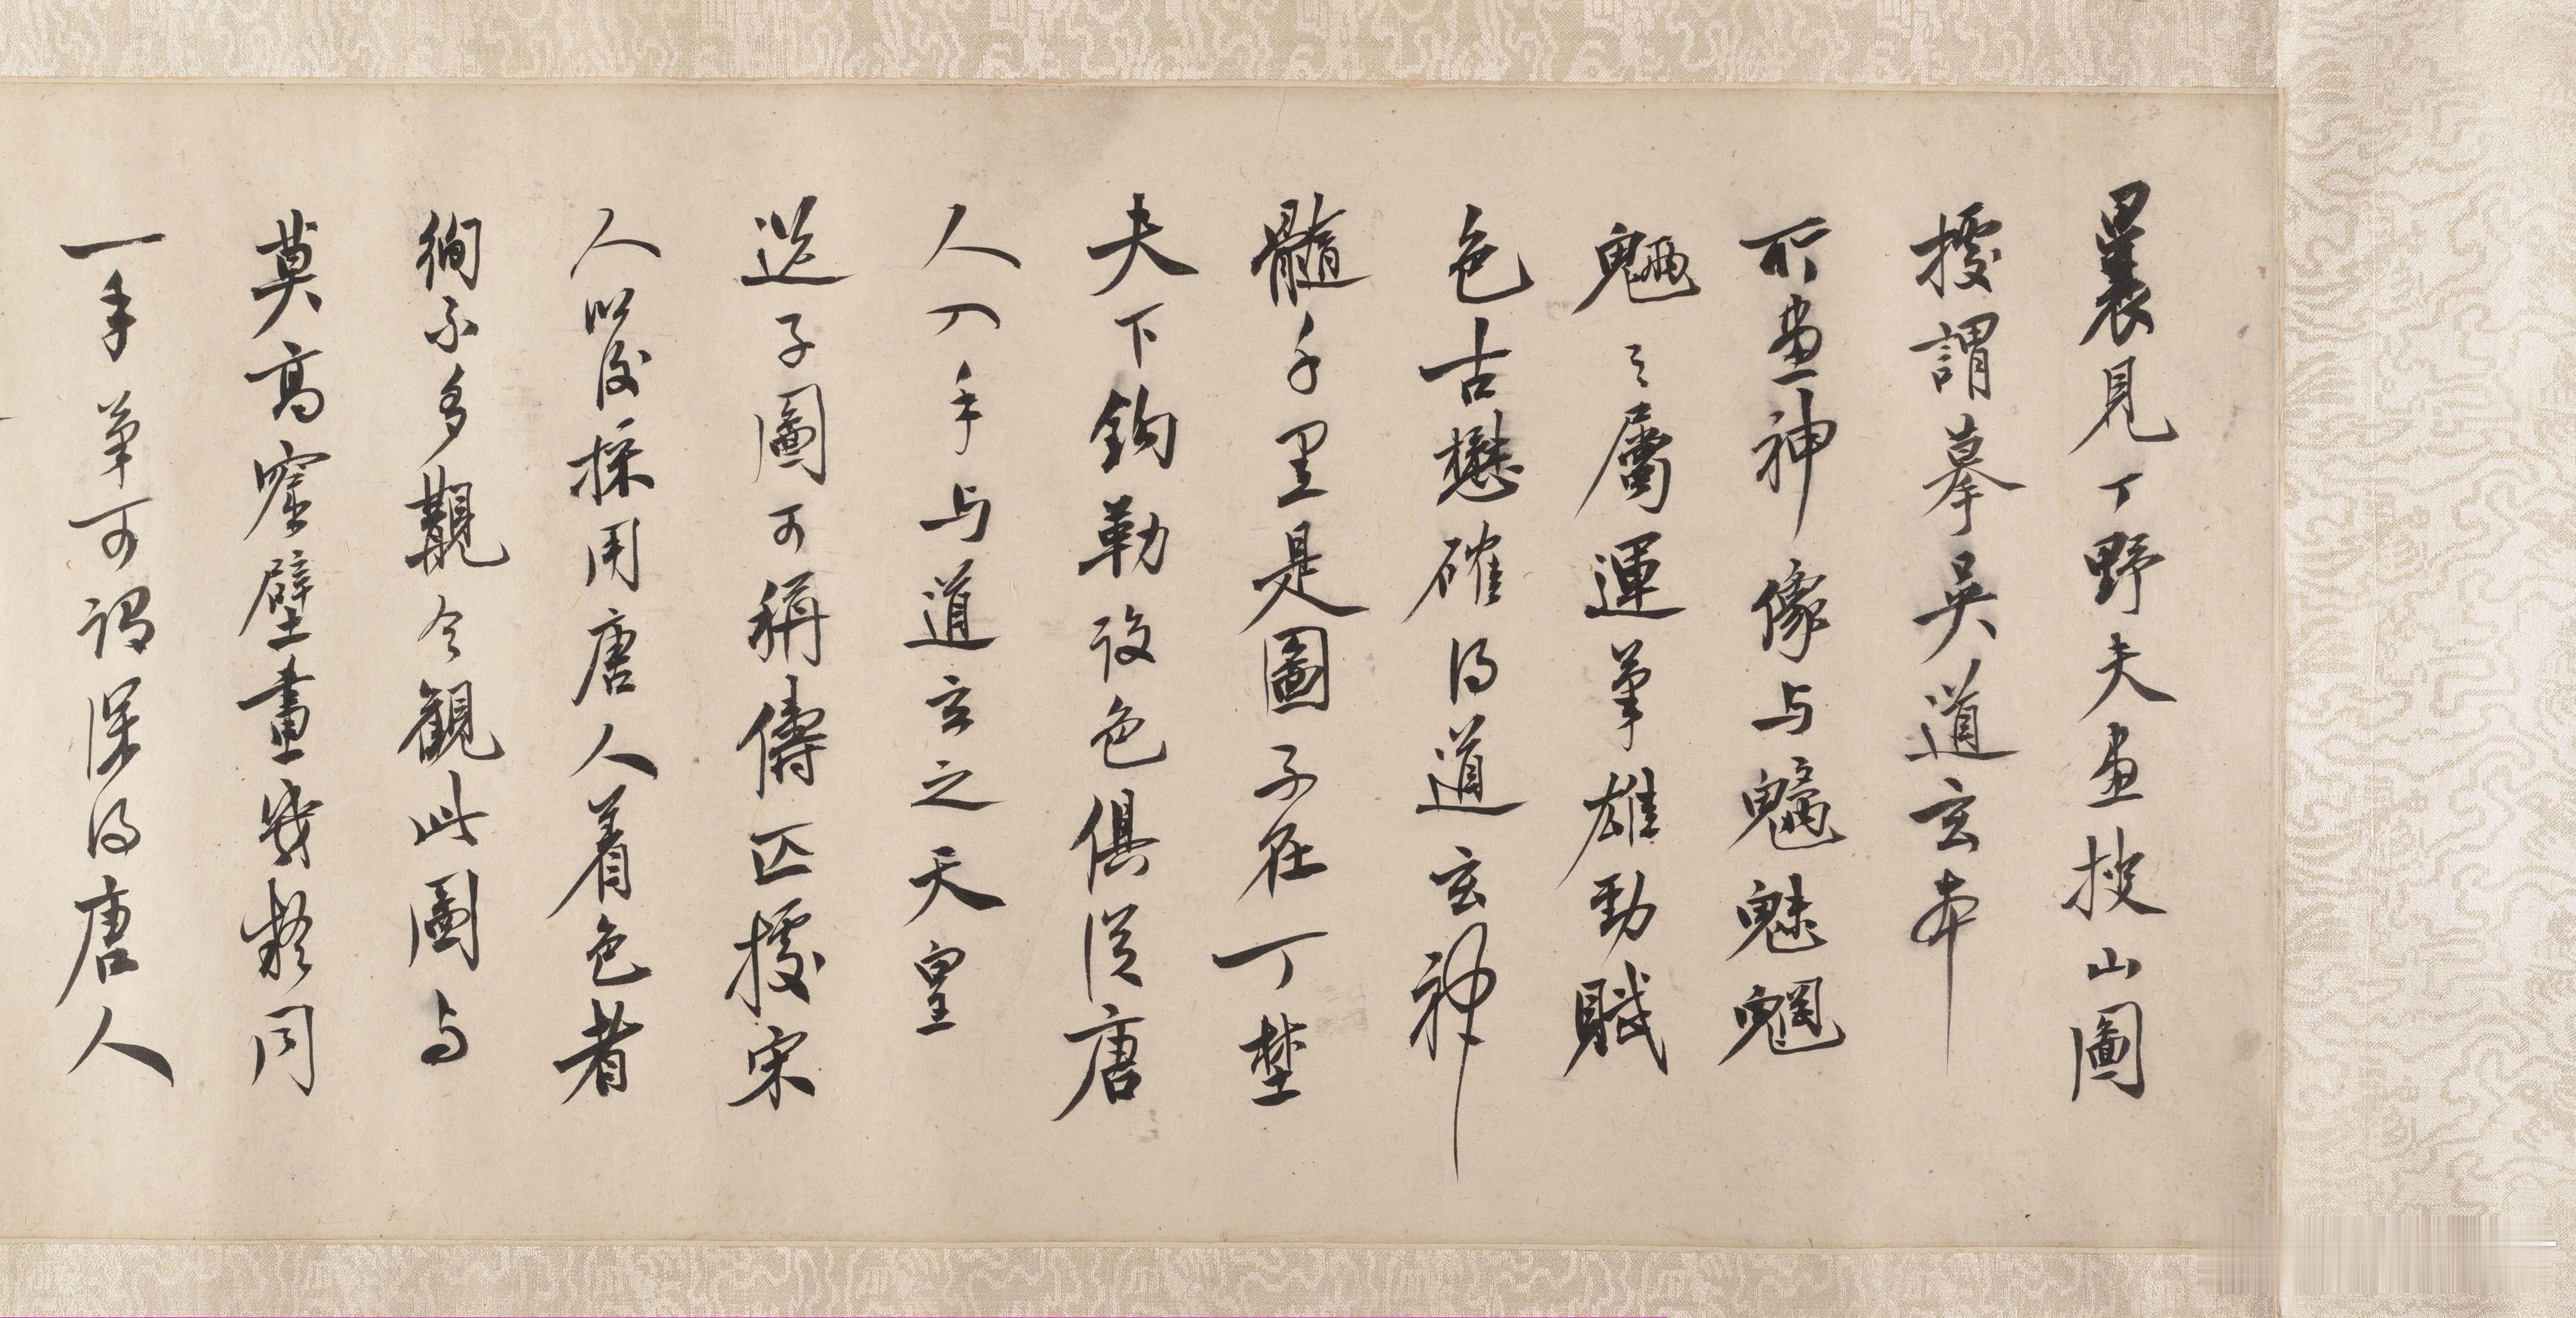 曩見丁野夫畫搜山圖
據謂摹吳道玄本
所畫神像与魑魅魍
魎之屬運筆雄勁賦
色古懋確得道玄神
髓里是圖不在丁埜
夫下鈎勒設色俱從唐
人入手与道玄之天皇
送子圖可稱儔匹據宋
人以後採用唐人着色者
徇不多覯今觀此圖与
莫高窟壁畫幾疑同
一手筆可謂深得唐人